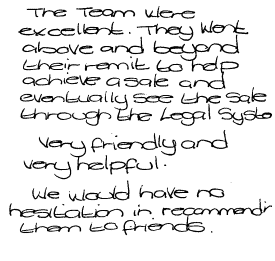 The Team were
excellent. They went
above and beyond
their remit to help
achieve a sale and
eventually see the sale
through the Legal Syste
Very friendly and
very helpful.
We would have no
hesitation in recommendin
them to friends.